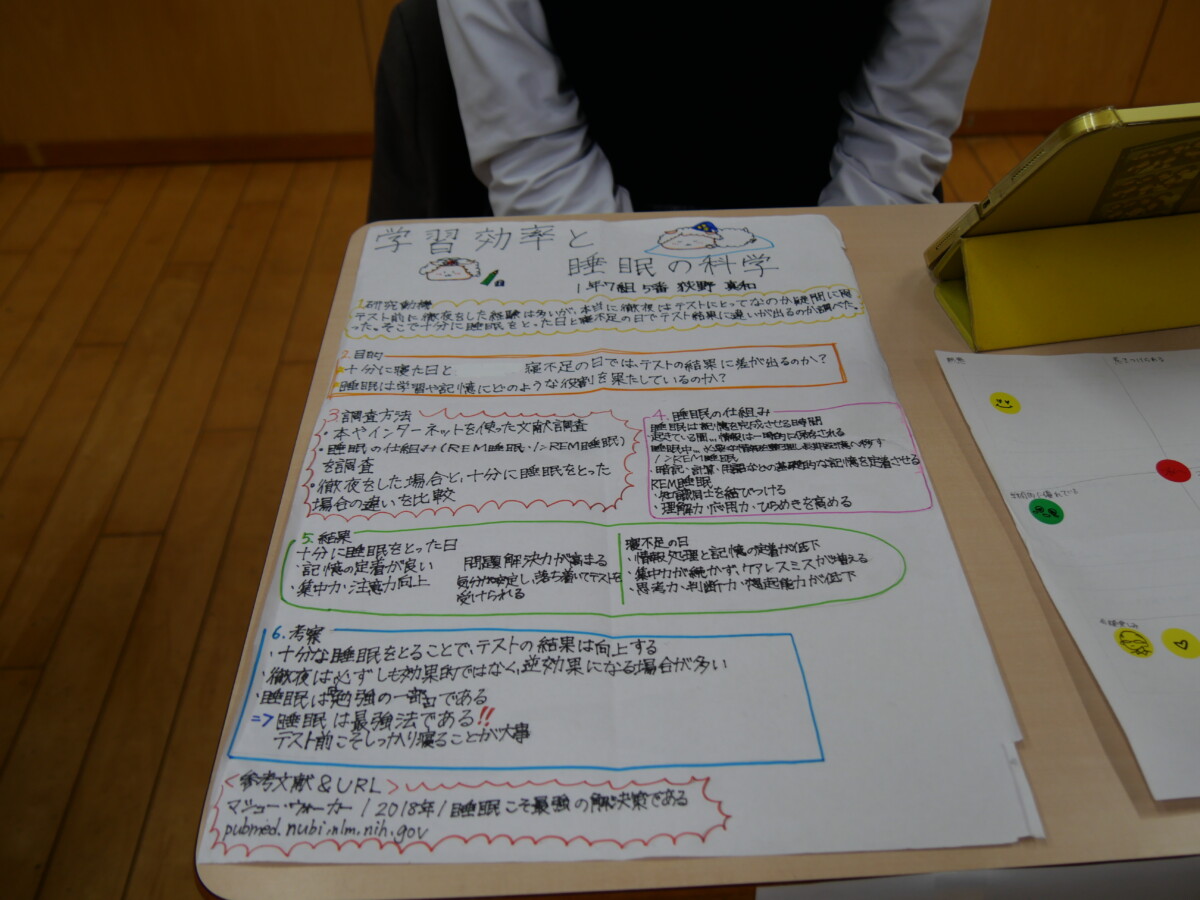 学習効率と
睡眠の科学
1年7組 5番 荻野 真和
1.研究動機
テスト前に徹夜をした経験は多いが、本当に徹夜はテストにとって
った。そこで十分に睡眠をとった日と寝不足の日でテスト結果に違いが出るのか調べた。
2.目的
十分に寝た日と 寝不足の日では、テストの結果に差が出るのか?
睡眠は学習や記憶にどのような役割を果たしているのか?
3調査方法
・本やインターネットを使った文献調査
・睡眠の仕組み(REM睡眠・ノンREM睡眠)
を調査
・徹夜をした場合と、十分に睡眠をとった
場合の違いを比較
4.睡眠の仕組み
睡眠は記憶を完成させる時間
起きている間…情報は一時的に保存される
ノンREM睡眠
・暗記・計算・用語などの基礎的な記憶を定着させる
REM睡眠
・知識同士を結びつける
・理解力・応用力・ひらめきを高める
5.結果
十分に睡眠をとった日
・記憶の定着が良い
・集中力・注意力向上
問題解決力が高まる
気分が安定し、落ち着いてテストを
受けられる
寝不足の日
・情報処理と記憶の定着が低下
・集中力が続かず、ケアレスミスが増える
・思考力・判断力・想起能力が低下
6.考察
・十分な睡眠をとることで、テストの結果は向上する
・徹夜は必ずしも効果的ではなく、逆効果になる場合が多い
・睡眠は勉強の一部である
=>睡眠は最強法である!!
テスト前こそしっかり寝ることが大事
<参考文献&URL>
マシュー・ウォーカー/2018年/睡眠こそ最強の解決策である
pubmed.nubi.nlm.nih.gov